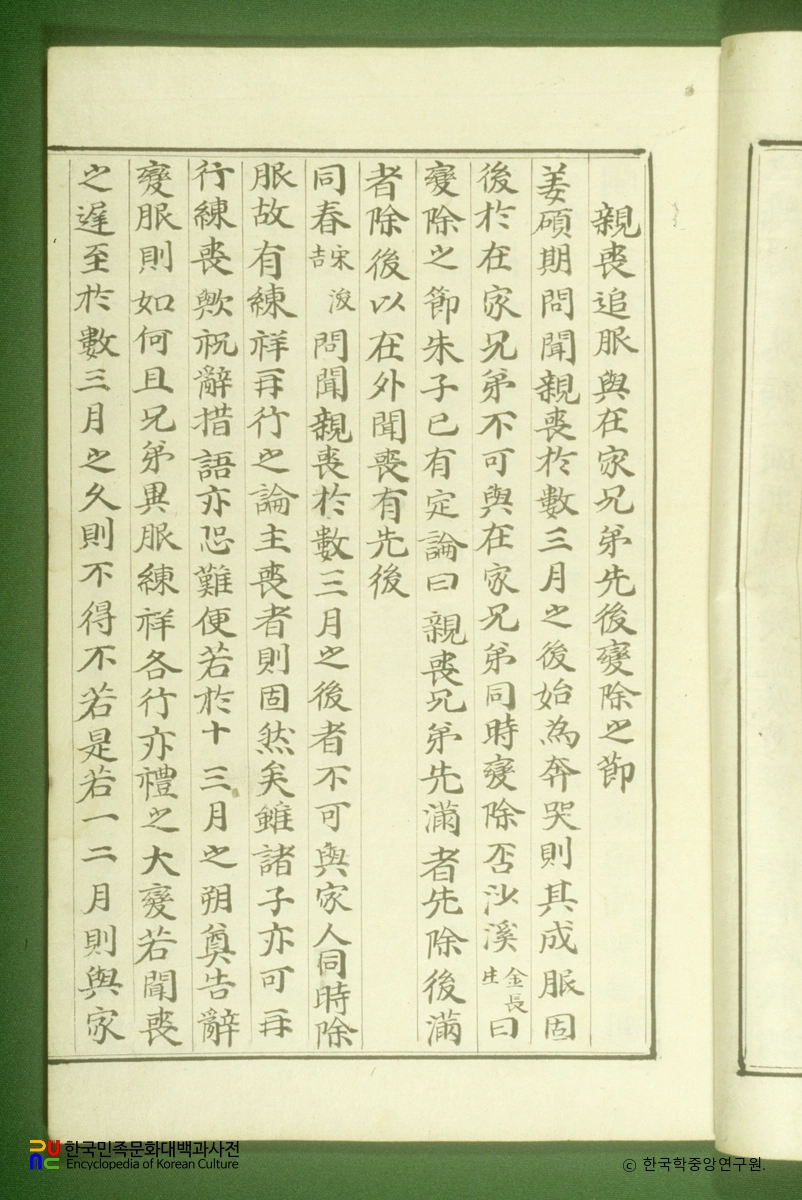 親喪追服與在家兄弟先後變除之節
姜碩期問聞親喪於數三月之後始為奔哭則其成服固
後於在家兄弟不可與在家兄弟同時變除否沙溪金長生曰
變除之節朱子已有定論曰親喪兄弟先滿者先除後滿
者除後以在外聞喪有先後
同春宋浚吉問聞親喪於數三月之後者不可與家人同時除
服故有練祥再行之論主喪者則固然矣雖諸子亦可再
行練喪歟祝辭措語亦恐難便若於十三月之朔奠告辭
變服則如何且兄弟異服練祥各行亦禮之大變若聞喪
之遲至於數三月之久則不得不若是若一二月則與家
한국민족문화대백과사전
Encyclopedia of Korean Culture
© 한국학중앙연구원.